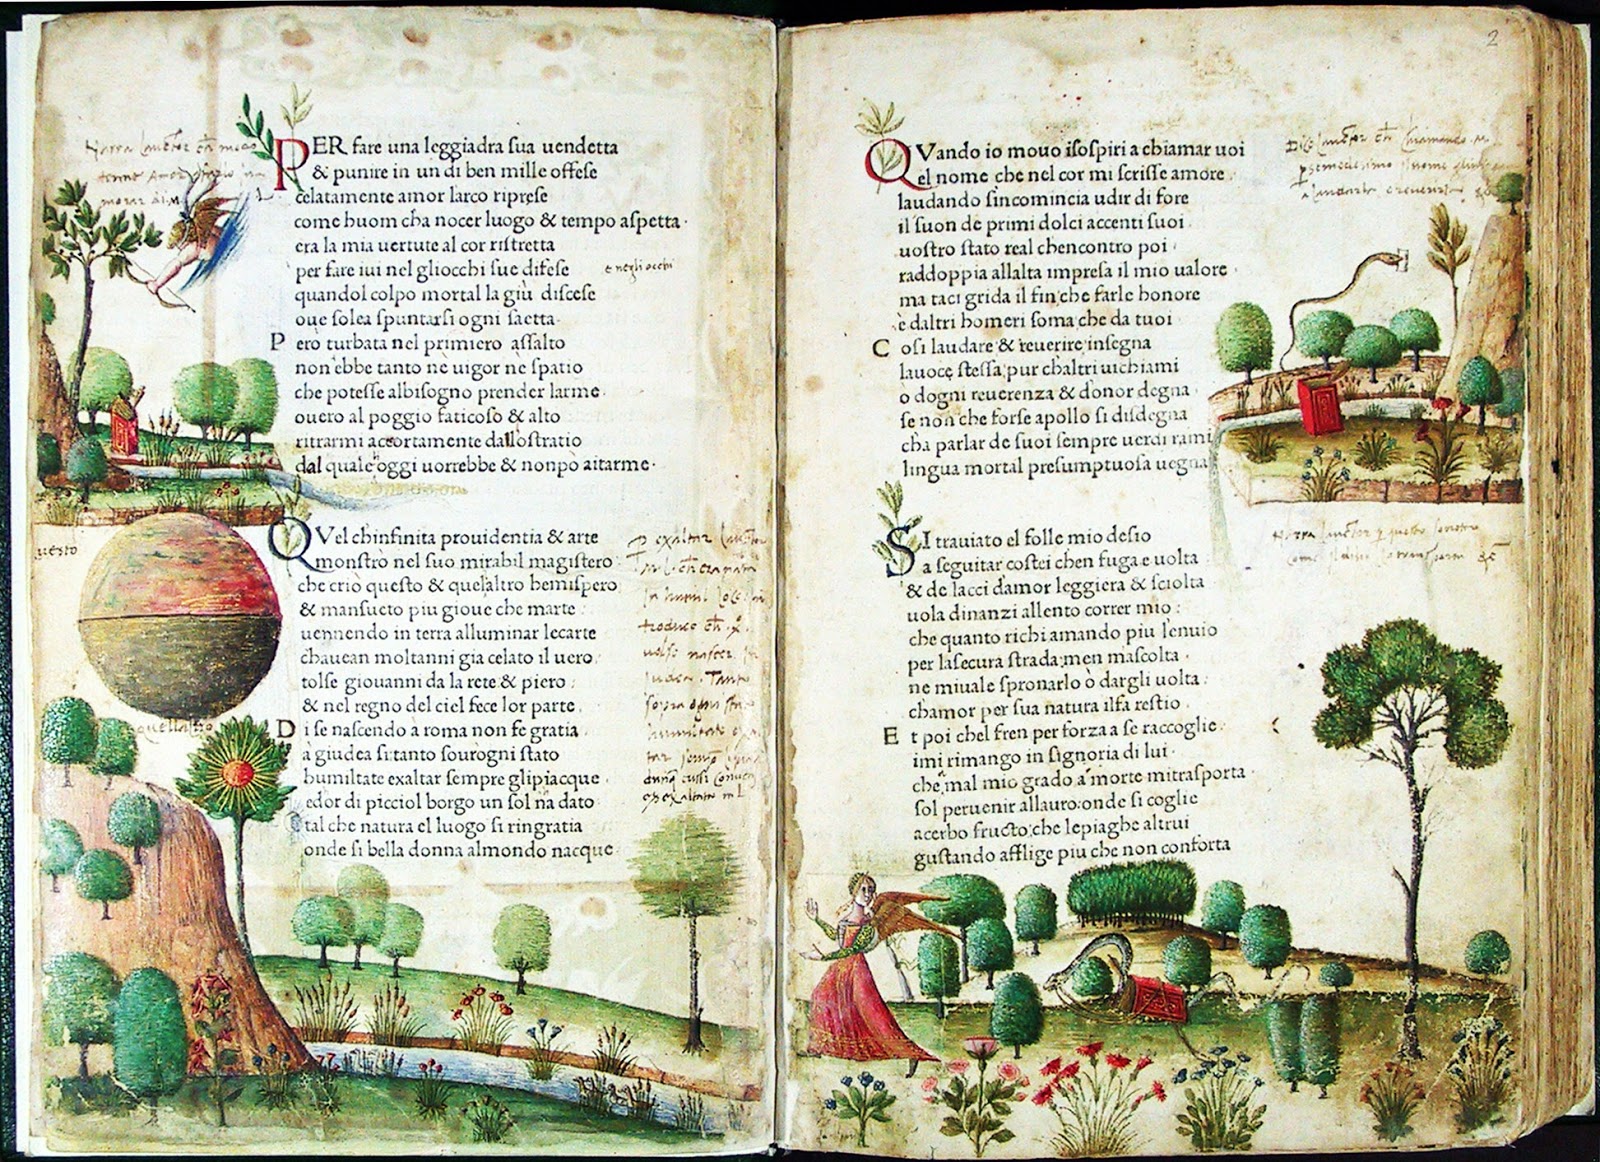 PER fare una leggiadra ſua uendetta
& punire in un di ben mille offeſe
celatamente amor larco ripreſe
come huom cha nocer luogo & tempo aſpetta.
era la mia uertute al cor riſtretta
per fare iui nel gliocchi ſue difeſe
e negli occhi
quandol colpo mortal la giù diſceſe
oue ſolea ſpuntarſi ogni ſaetta.
Pero turbata nel primiero aſſalto
non ebbe tanto nè uigor nè ſpatio
che poteſſe albiſogno prender larme.
ouero al poggio faticoſo & alto
ritrarmi accortamente dalloſtratio
dal quale oggi uorrebbe & nonpò aitarme.
QVel chinfinita prouidentia & arte
monſtrò nel ſuo mirabil magiſtero
che criò queſto & quelaltro hemiſpero
& manſueto piu gioue che marte.
uennendo in terra alluminar lecarte
chauean moltanni gia celato il uero.
tolſe giouanni da la rete & piero:
& nel regno del ciel fece lor parte.
Di ſe naſcendo a roma non fe gratia
à giudea ſi: tanto ſourogni ſtato
humiltate exaltar ſempre glipiacque.
edor di picciol borgo un ſol na dato
tal che natura el luogo ſi ringratia
onde ſi bella donna almondo nacque.
2
QVando io mouo iſoſpiri a chiamar uoi
el nome che nel cor mi ſcriſſe amore
laudando ſincomincia udir di fore
il ſuon de primi dolci accenti ſuoi.
uoſtro ſtato real chencontro poi
raddoppia allalta impreſa il mio ualore.
ma taci grida il fin: che farle honore
è daltri homeri ſoma: che da tuoi
Coſi laudare & reuerire inſegna
lauoce ſteſſa: pur chaltri uichiami
o dogni reuerenza & donor degna
ſe non che forſe apollo ſi diſdegna
cha parlar de ſuoi ſempre uerdi rami
lingua mortal preſumptuoſa uegna
SI trauiato el folle mio deſio
a ſeguitar coſtei chen fuga e uolta
& de lacci damor leggiera & ſciolta
uola dinanzi allento correr mio:
che quanto richiamando piu lenuio
per laſecura ſtrada: men maſcolta.
ne miuale ſpronarlo ò dargli uolta:
chamor per ſua natura ilfa reſtio
Et poi chel fren per forza a ſe raccoglie:
imi rimango in ſignoria di lui.
che mal mio grado a morte mitraſporta
ſol peruenir allauro: onde ſi coglie
acerbo fructo: che lepiaghe altrui
guſtando afflige piu che non conforta